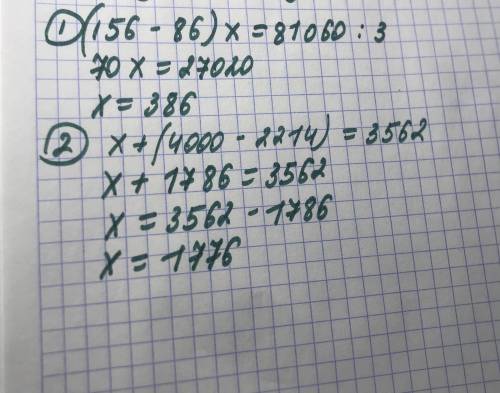 ① (156 - 86) x = 81060 : 3
70 x = 27020
x = 386
② x + (4000 - 2214) = 3562
x + 1786 = 3562
x = 3562 - 1786
x = 1776